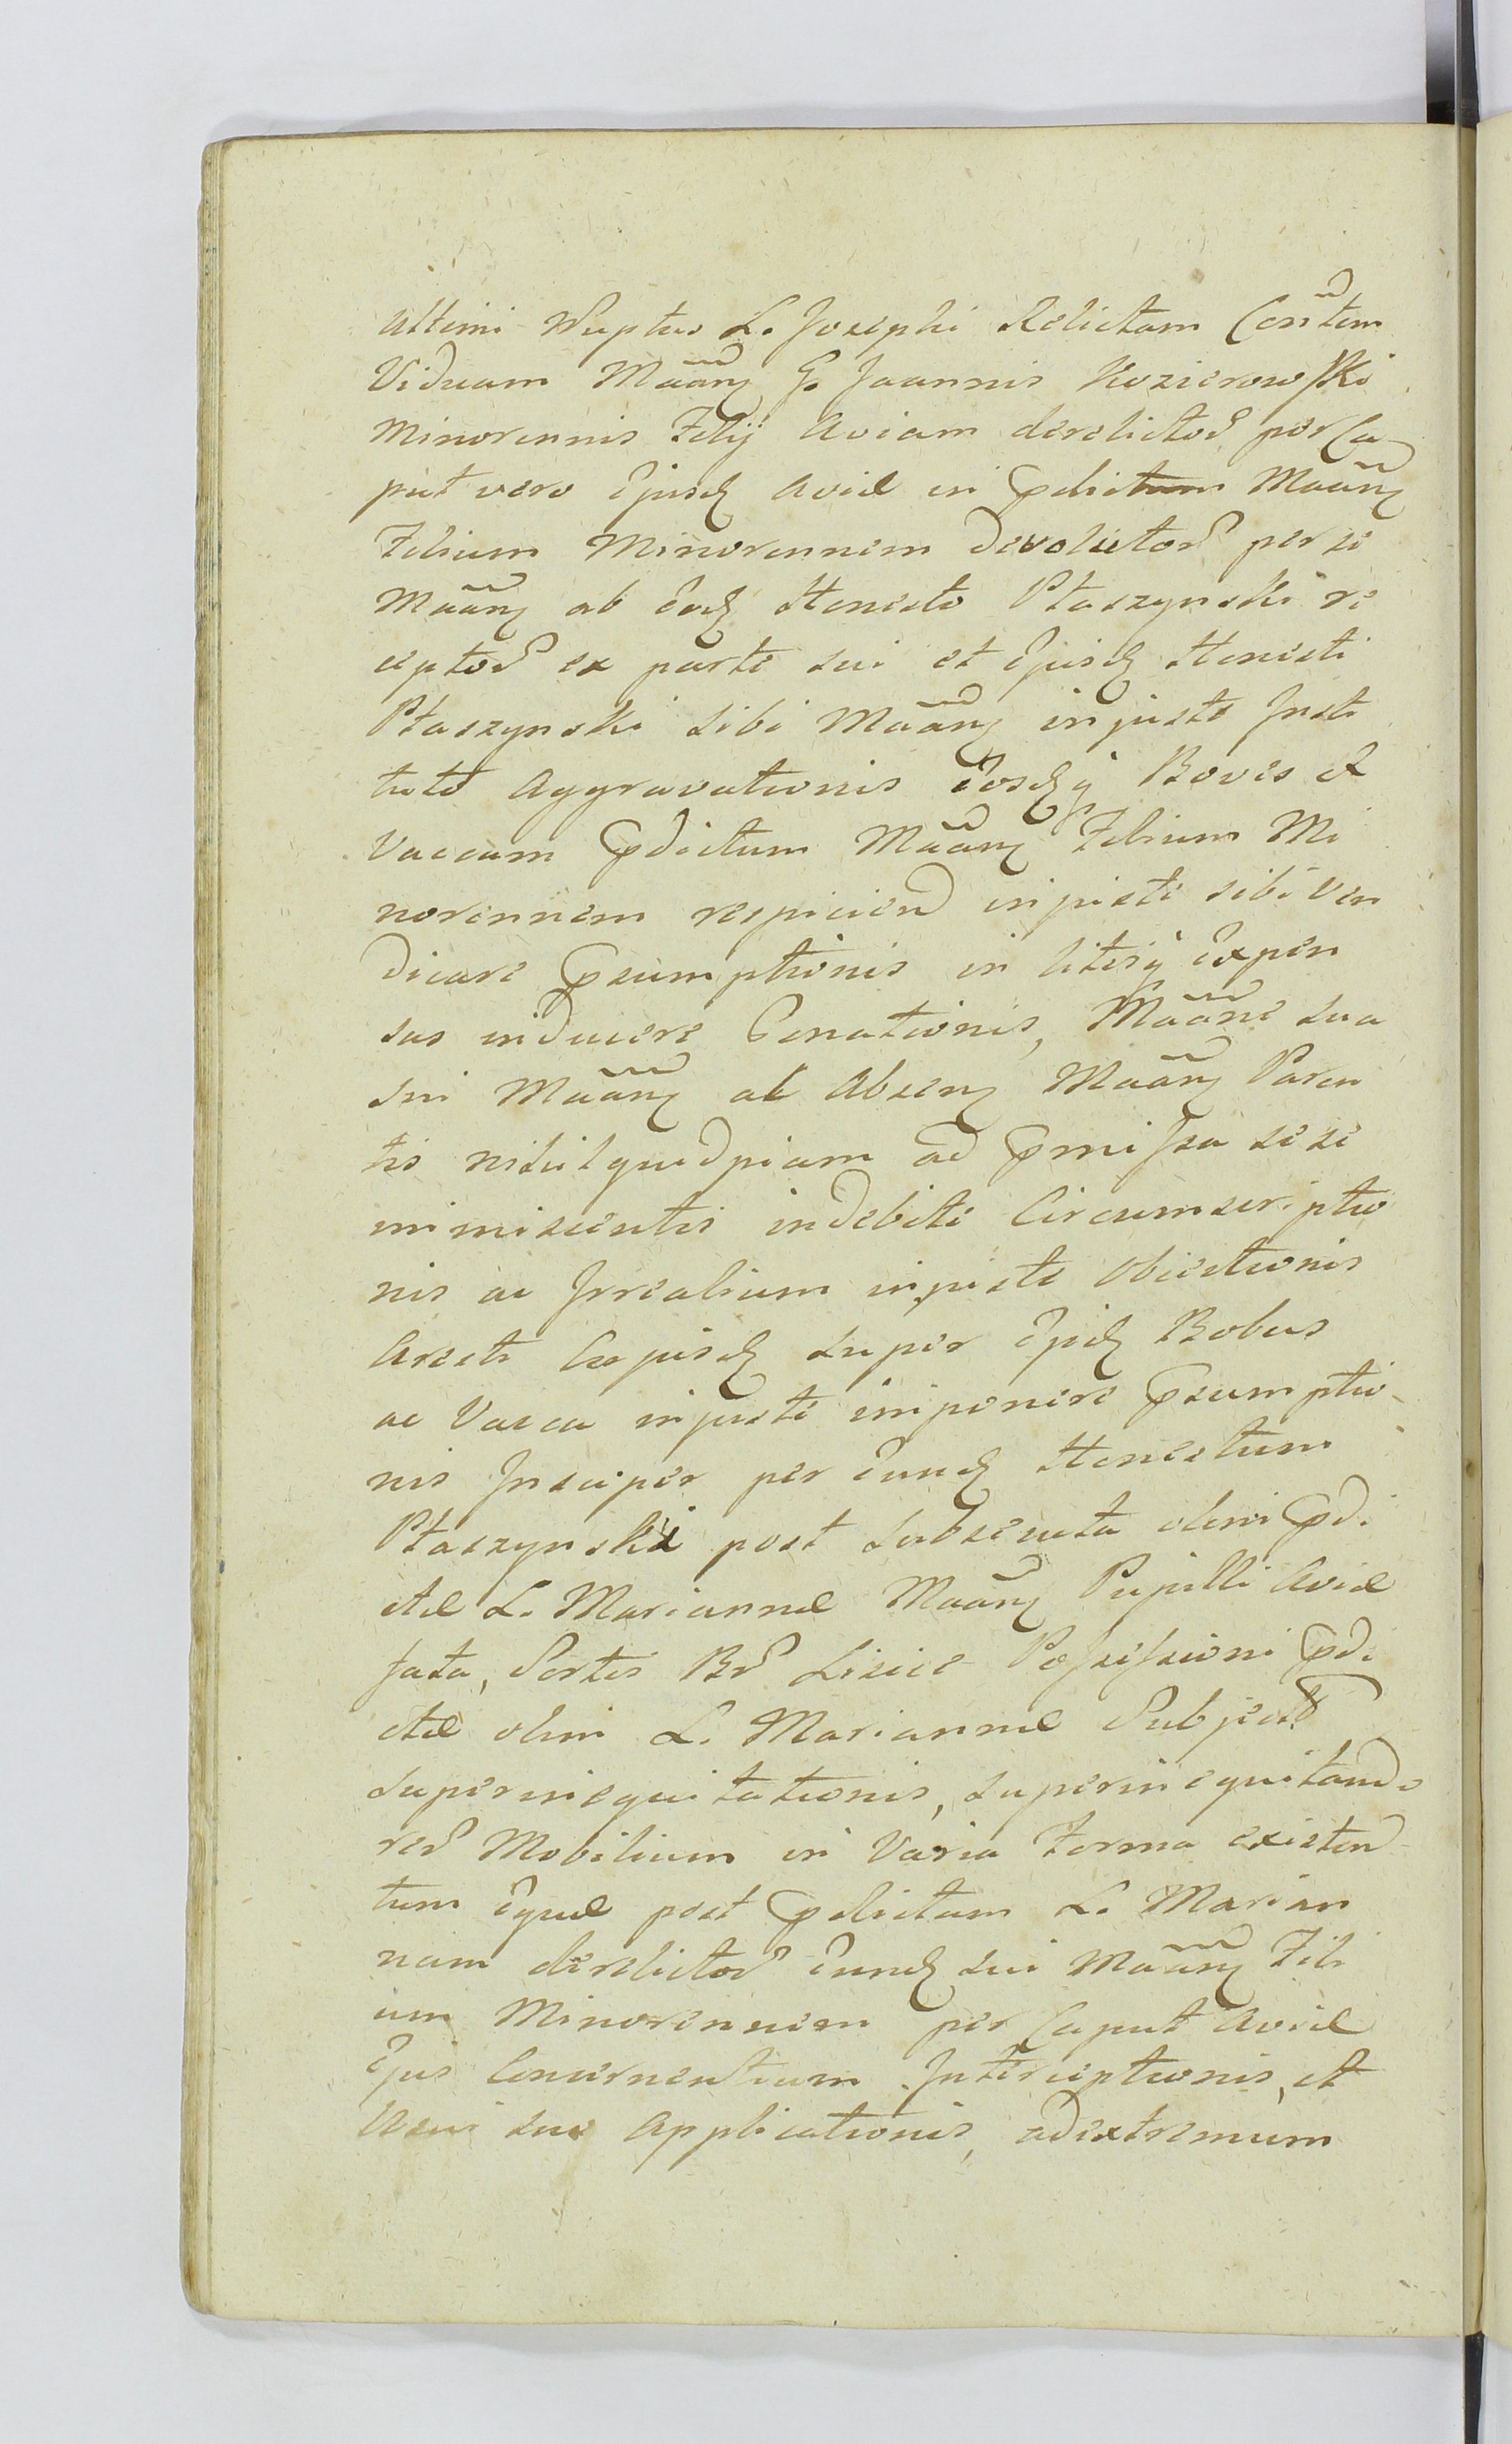 ultimi Nuptus L. Josephi Relictam Cen̄tem
Viduam Māānꝫ G. Joannis Kozierowski
Minorennis Filij Aviam derelictoꝝ per Ca-
put vero Ejusdꝫ Aviæ in Pdictum Māānꝫ
Filium Minorennem devolutoꝝ per se
Māānꝫ ab Eodꝫ Honesto Ptaszynski re
ceptoꝝ ex parte sui et Ejusdꝫ Honesti
Ptaszynski sibi Māānꝫ injuste Insti
tutæ Aggravationis Eosdꝫqꝫ Boves et
Vaccam Pdictum Māānꝫ Filium Mi
norennem respiciend injuste sibi ven
dicare Psumptionis in litesqꝫ Expen
sas inducere Conationis, Māāne sua
sui Māānꝫ ac Absenꝫ Māānꝫ Paren
tis nihil quidpiam ad Pmissa sese
immiscentis indebite Circumscriptio
nis ac Irrealium injuste Objectionis
Aresti Cujusdꝫ super Ejsdꝫ Bobus
ac Vacca injuste imponere Psumptio-
nis Insuper per Eundꝫ Honestum
Ptaszynski post subsecuta olim Pdi
ctæ L. Mariannæ Māānꝫ Pupilli Aviæ
fata, Sortis Bꝝ Lisice Possessioni Pdi
ctæ olim L. Mariannæ Subject
superinequitationis, superinequitando
reꝝ Mobilium in Varia Forma existen
tum Eque post Pdictam L. Marian
nam derelictoꝝ Eundꝫ sui Māānꝫ Fili
um Minorennem per Caput Aviæ
Ejus Concernentium Interceptionis, et
Usui suo Applicationis, adextremum